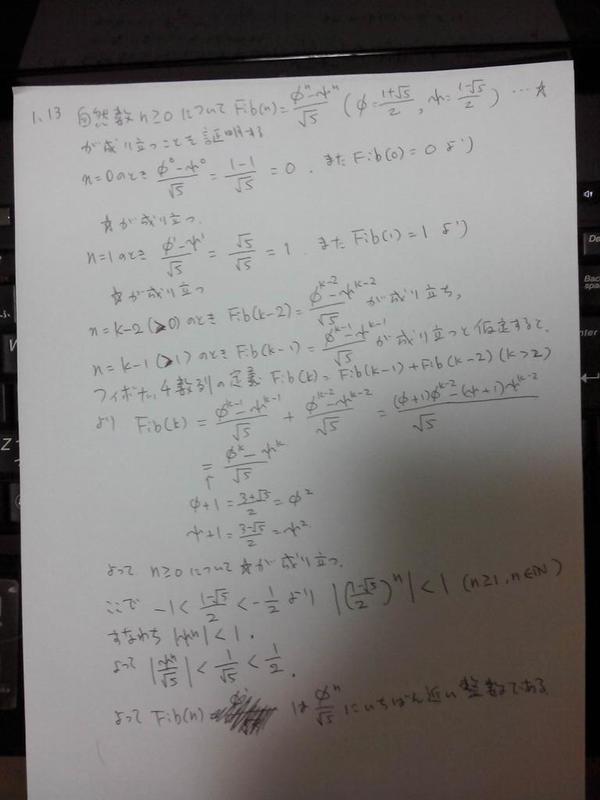 1.13 自然数 n≥0 について Fib(n) = (φ^n - ψ^n)/√5 (φ = (1+√5)/2, ψ = (1-√5)/2) … ☆
が成り立つことを証明する
n=0のとき (φ^0 - ψ^0)/√5 = (1-1)/√5 = 0. また Fib(0) = 0 より
☆が成り立つ.
n=1のとき (φ^1 - ψ^1)/√5 = √5/√5 = 1. また Fib(1) = 1 より
☆が成り立つ
n=k-2(≥0)のとき Fib(k-2) = (φ^{k-2} - ψ^{k-2})/√5 が成り立ち,
n=k-1(≥1)のとき Fib(k-1) = (φ^{k-1} - ψ^{k-1})/√5 が成り立つと仮定すると,
フィボナッチ数列の定義 Fib(k) = Fib(k-1) + Fib(k-2) (k≥2)
より Fib(k) = (φ^{k-1} - ψ^{k-1})/√5 + (φ^{k-2} - ψ^{k-2})/√5 = ((φ+1)φ^{k-2} - (ψ+1)ψ^{k-2})/√5
= (φ^k - ψ^k)/√5
↑
φ+1 = (3+√5)/2 = φ^2
ψ+1 = (3-√5)/2 = ψ^2
よって n≥0 について ☆が成り立つ.
ここで -1 < (1-√5)/2 < -1/2 より |((1-√5)/2)^n| < 1 (n≥1, n∈ℕ)
すなわち |ψ^n| < 1.
よって |ψ^n/√5| < 1/√5 < 1/2.
よって Fib(n) は φ^n/√5 にいちばん近い整数である